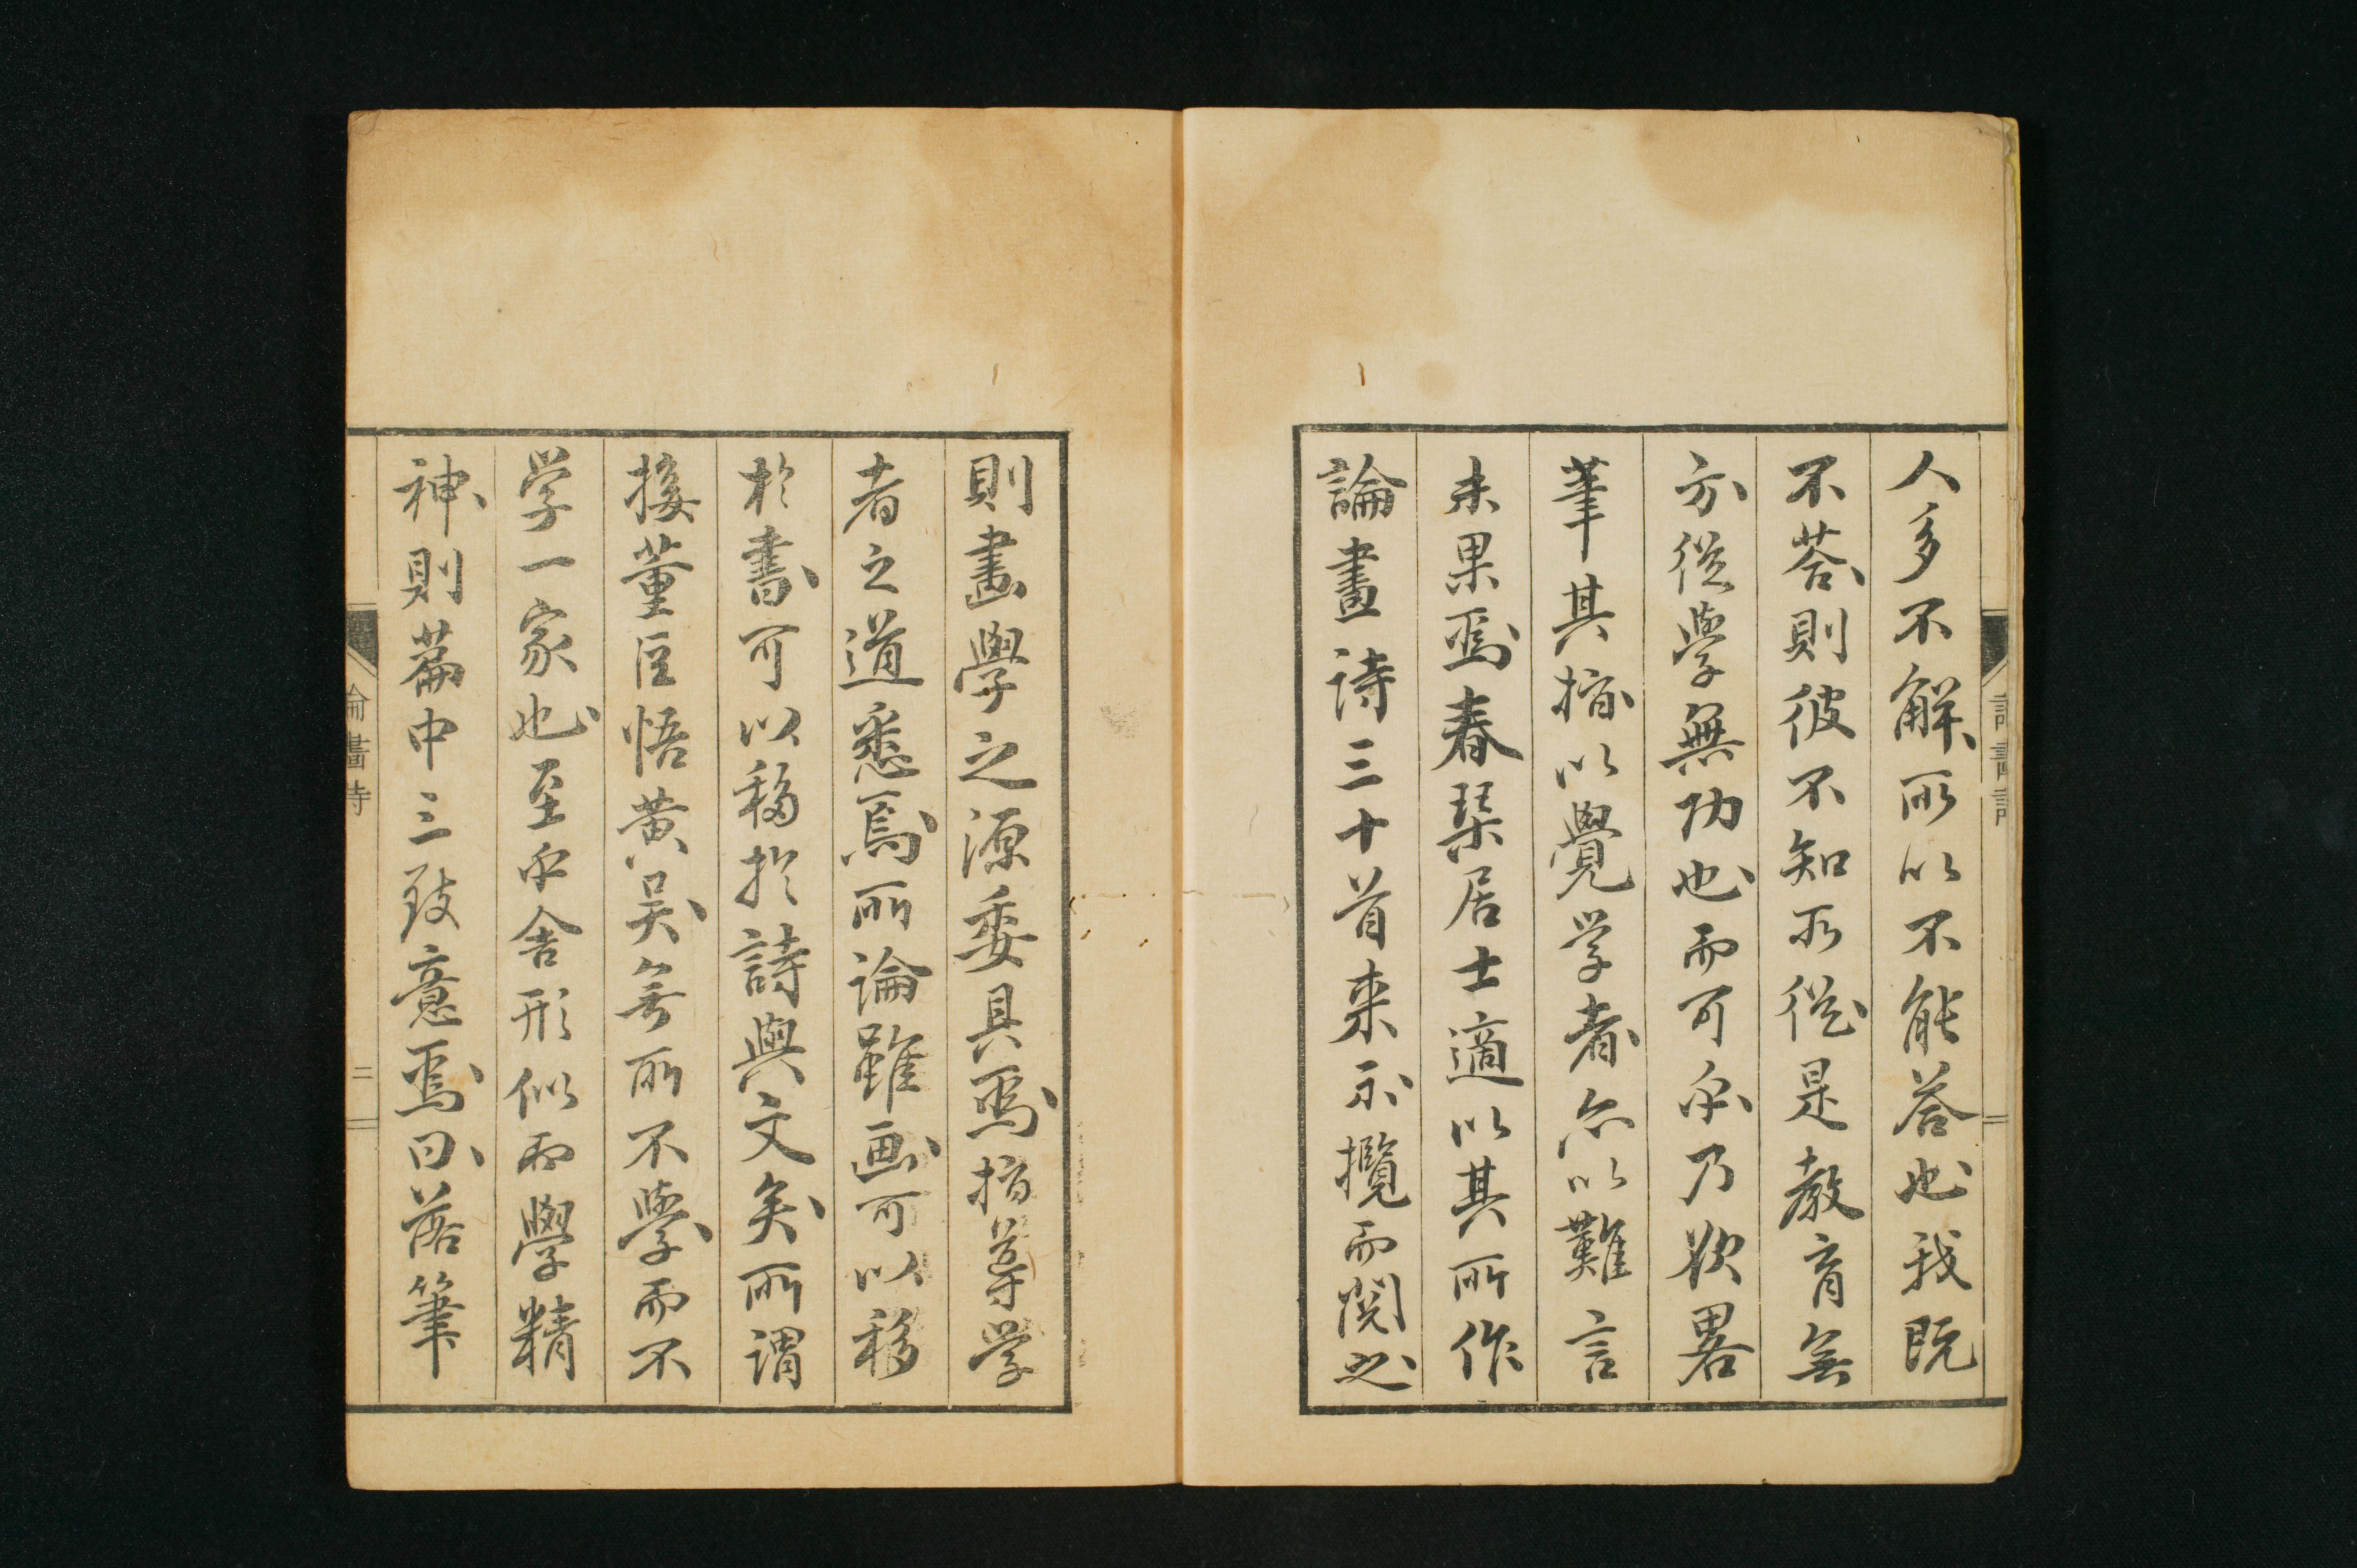 人多不解所以不能荅也我既
不荅則彼不知所從是教育無
方從學無功也而可乎乃欲畧
筆其指以覺学者亦以難言
未果焉春琹居士適以其所作
論畫詩三十首来示攬而閲之
則畫學之源委具焉指導学
者之道悉焉所論雖画可以移
於書可以移於詩與文矣所謂
接董臣悟黄吴無所不學而不
学一家也至乎舍形似而學精
神則篇中三致意焉曰落筆
論畫詩
二